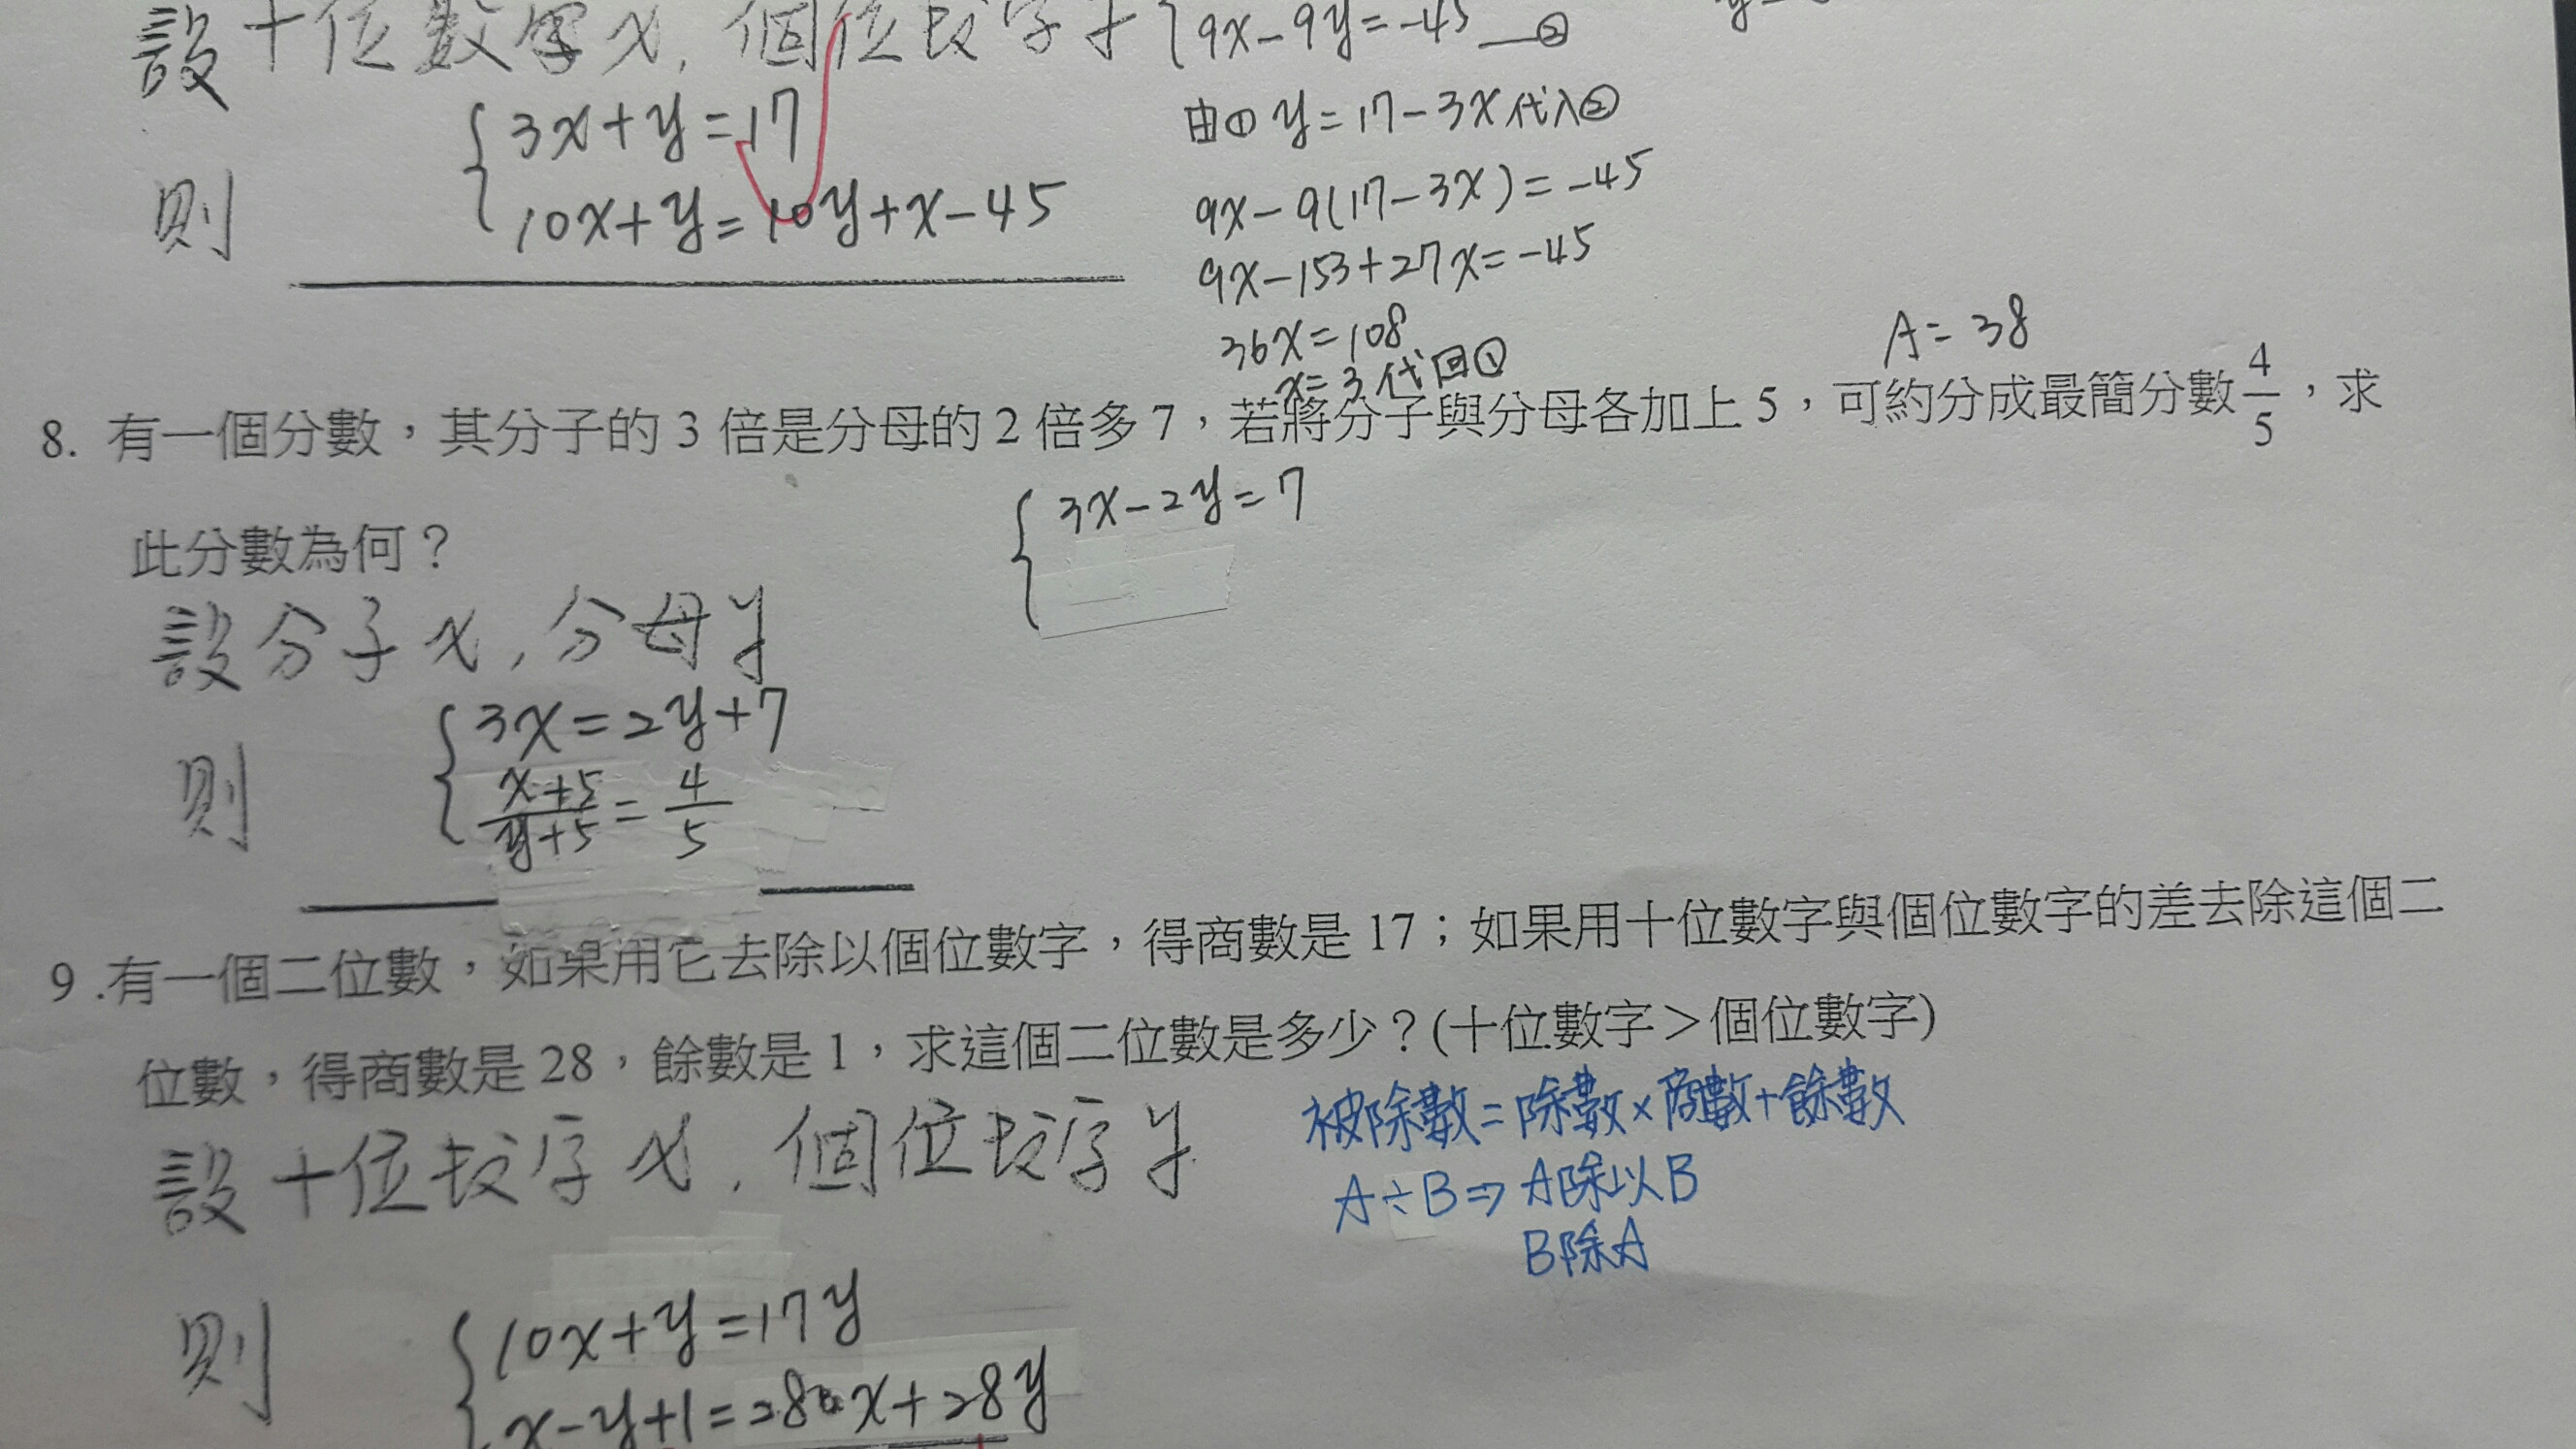 設十位數字x，個位數字y
{ 3x+y=17
則 10x+y=10y+x-45
9x-9y=-45 —②
由① y=17-3x代入②
9x-9(17-3x)=-45
9x-153+27x=-45
36x=108
x=3代回①
A=38
8. 有一個分數，其分子的 3 倍是分母的 2 倍多 7，若將分子與分母各加上 5，可約分成最簡分數4/5，求
此分數為何？
{ 3x-2y=7
設分子x，分母y
{ 3x=2y+7
則 (x+5)/(y+5)=4/5
9 .有一個二位數，如果用它去除以個位數字，得商數是 17；如果用十位數字與個位數字的差去除這個二
位數，得商數是 28，餘數是 1，求這個二位數是多少？(十位數字＞個位數字)
被除數=除數×商數+餘數
A÷B⇒A除以B
B除A
設十位數字x，個位數字y
{ 10x+y=17y
則 x-y+1=28x+28y